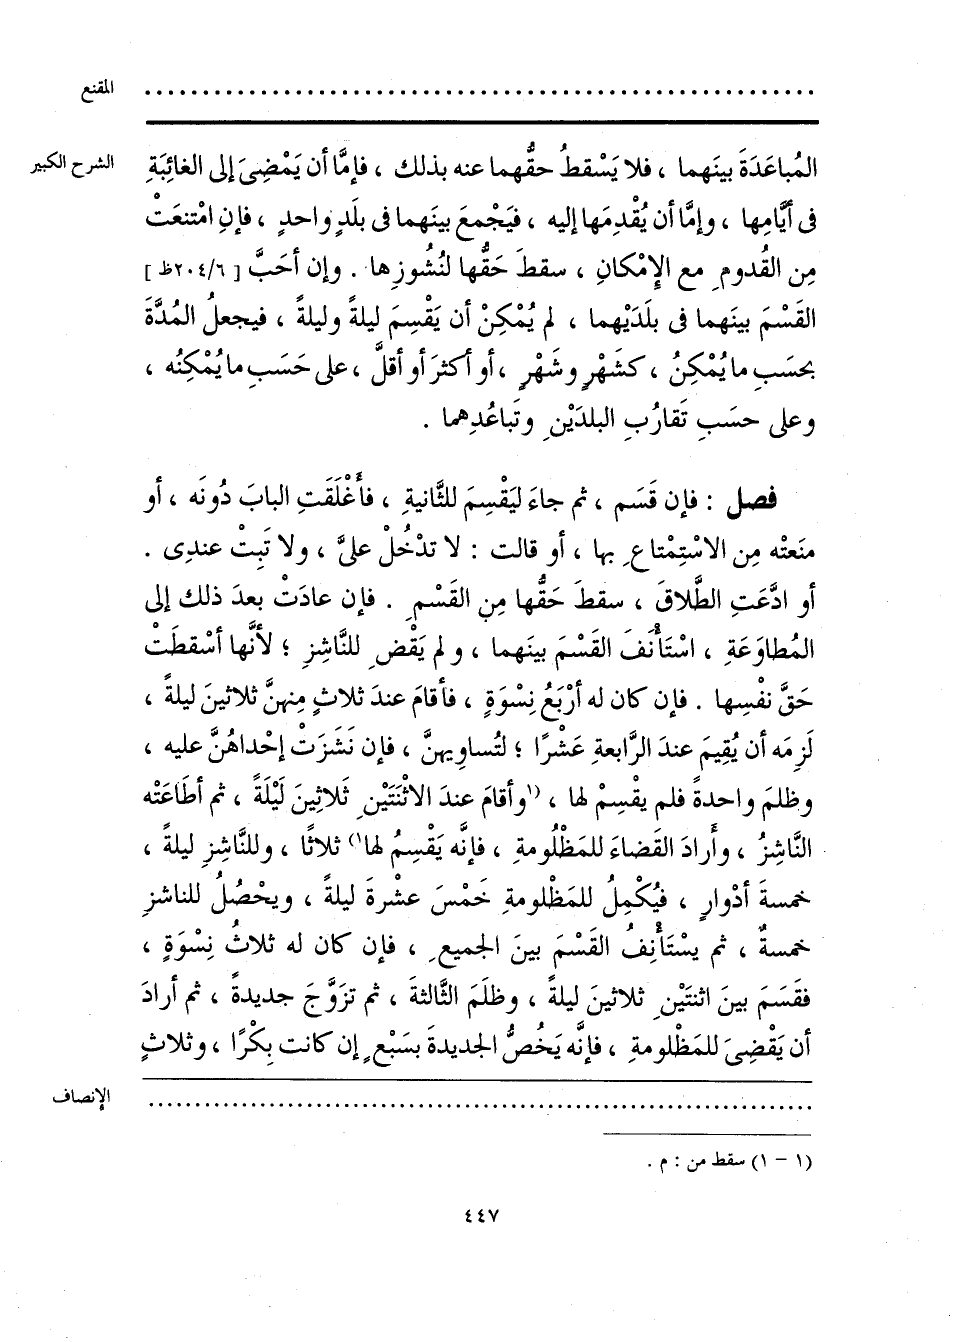 المقنع
الشرح الكبير
المُباعَدَةَ بينَهما ، فلا يَسْقطُ حقُّهما عنه بذلك ، فإمَّا أن يَمْضِىَ إلى الغائِبَةِ
فى أيَّامِها ، وإمَّا أن يُقْدِمَها إليه ، فيَجْمعَ بينَهما فى بلَدٍ واحدٍ ، فإنِ امْتنعَتْ
مِن القُدومِ مع الإِمْكانِ ، سقطَ حَقُّها لنُشُوزِها . وإن أحَبَّ [ ٢٠٤/٦ظ ]
القَسْمَ بينَهما فى بلَدَيْهما ، لم يُمْكِنْ أن يَقْسِمَ ليلةً وليلةً ، فيجعلُ المُدَّةَ
بحسَبِ ما يُمْكِنُ ، كشَهْرٍ وشَهْرٍ ، أو أكثرَ أو أقلَّ ، على حَسَبِ ما يُمْكِنُه ،
وعلى حسَبِ تَقارُبِ البلدَيْنِ وتَباعُدِهما .
فصل : فإن قَسَم ، ثم جاءَ ليَقْسِمَ للثَّانيةِ ، فأَغْلَقَتِ البابَ دُونَه ، أو
منَعتْه مِن الاسْتِمْتاعِ بها ، أو قالت : لا تدْخُلْ علىَّ ، ولا تَبِتْ عندِى .
أو ادَّعَتِ الطَّلاقَ ، سقطَ حَقُّها مِن القَسْمِ . فإن عادَتْ بعدَ ذلك إلى
المُطاوَعَةِ ، اسْتَأْنَفَ القَسْمَ بينَهما ، ولم يَقْضِ للنَّاشِزِ ؛ لأنَّها أسْقطَتْ
حَقَّ نفْسِها . فإن كان له أرْبَعُ نِسْوَةٍ ، فأقامَ عندَ ثلاثٍ مِنهنَّ ثلاثينَ ليلةً ،
لَزِمَه أن يُقِيمَ عندَ الرَّابعةِ عَشْرًا ؛ لتُساوِيهنَّ ، فإن نَشَزَتْ إحْداهُنَّ عليه ،
وظلمَ واحدةً فلم يقْسِمْ لها ، (١وأقامَ عندَ الاثْنَتَيْنِ ثَلاثِينَ لَيْلَةً ، ثم أطَاعَتْه
النَّاشِزُ ، وأرادَ القَضاءَ للمَظْلُومةِ ، فإنَّه يَقْسِمُ لها١) ثلاثًا ، وللنَّاشِزِ ليلةً ،
خمسةَ أدْوارٍ ، فيُكْمِلُ للمَظْلومةِ خَمْسَ عشْرةَ ليلةً ، ويحْصُلُ للناشزِ
خمسةٌ ، ثم يسْتَأْنِفُ القَسْمَ بينَ الجميعِ ، فإن كان له ثلاثُ نِسْوَةٍ ،
فقَسَمَ بينَ اثنتَيْنِ ثلاثينَ ليلةً ، وظلَمَ الثَّالثةَ ، ثم تزَوَّجَ جديدةً ، ثم أرادَ
أن يَقْضِىَ للمَظْلومةِ ، فإنَّه يَخُصُّ الجديدةَ بسَبْعٍ إن كانت بِكْرًا ، وثلاثٍ
الإنصاف
(١ - ١) سقط من : م .
٤٤٧